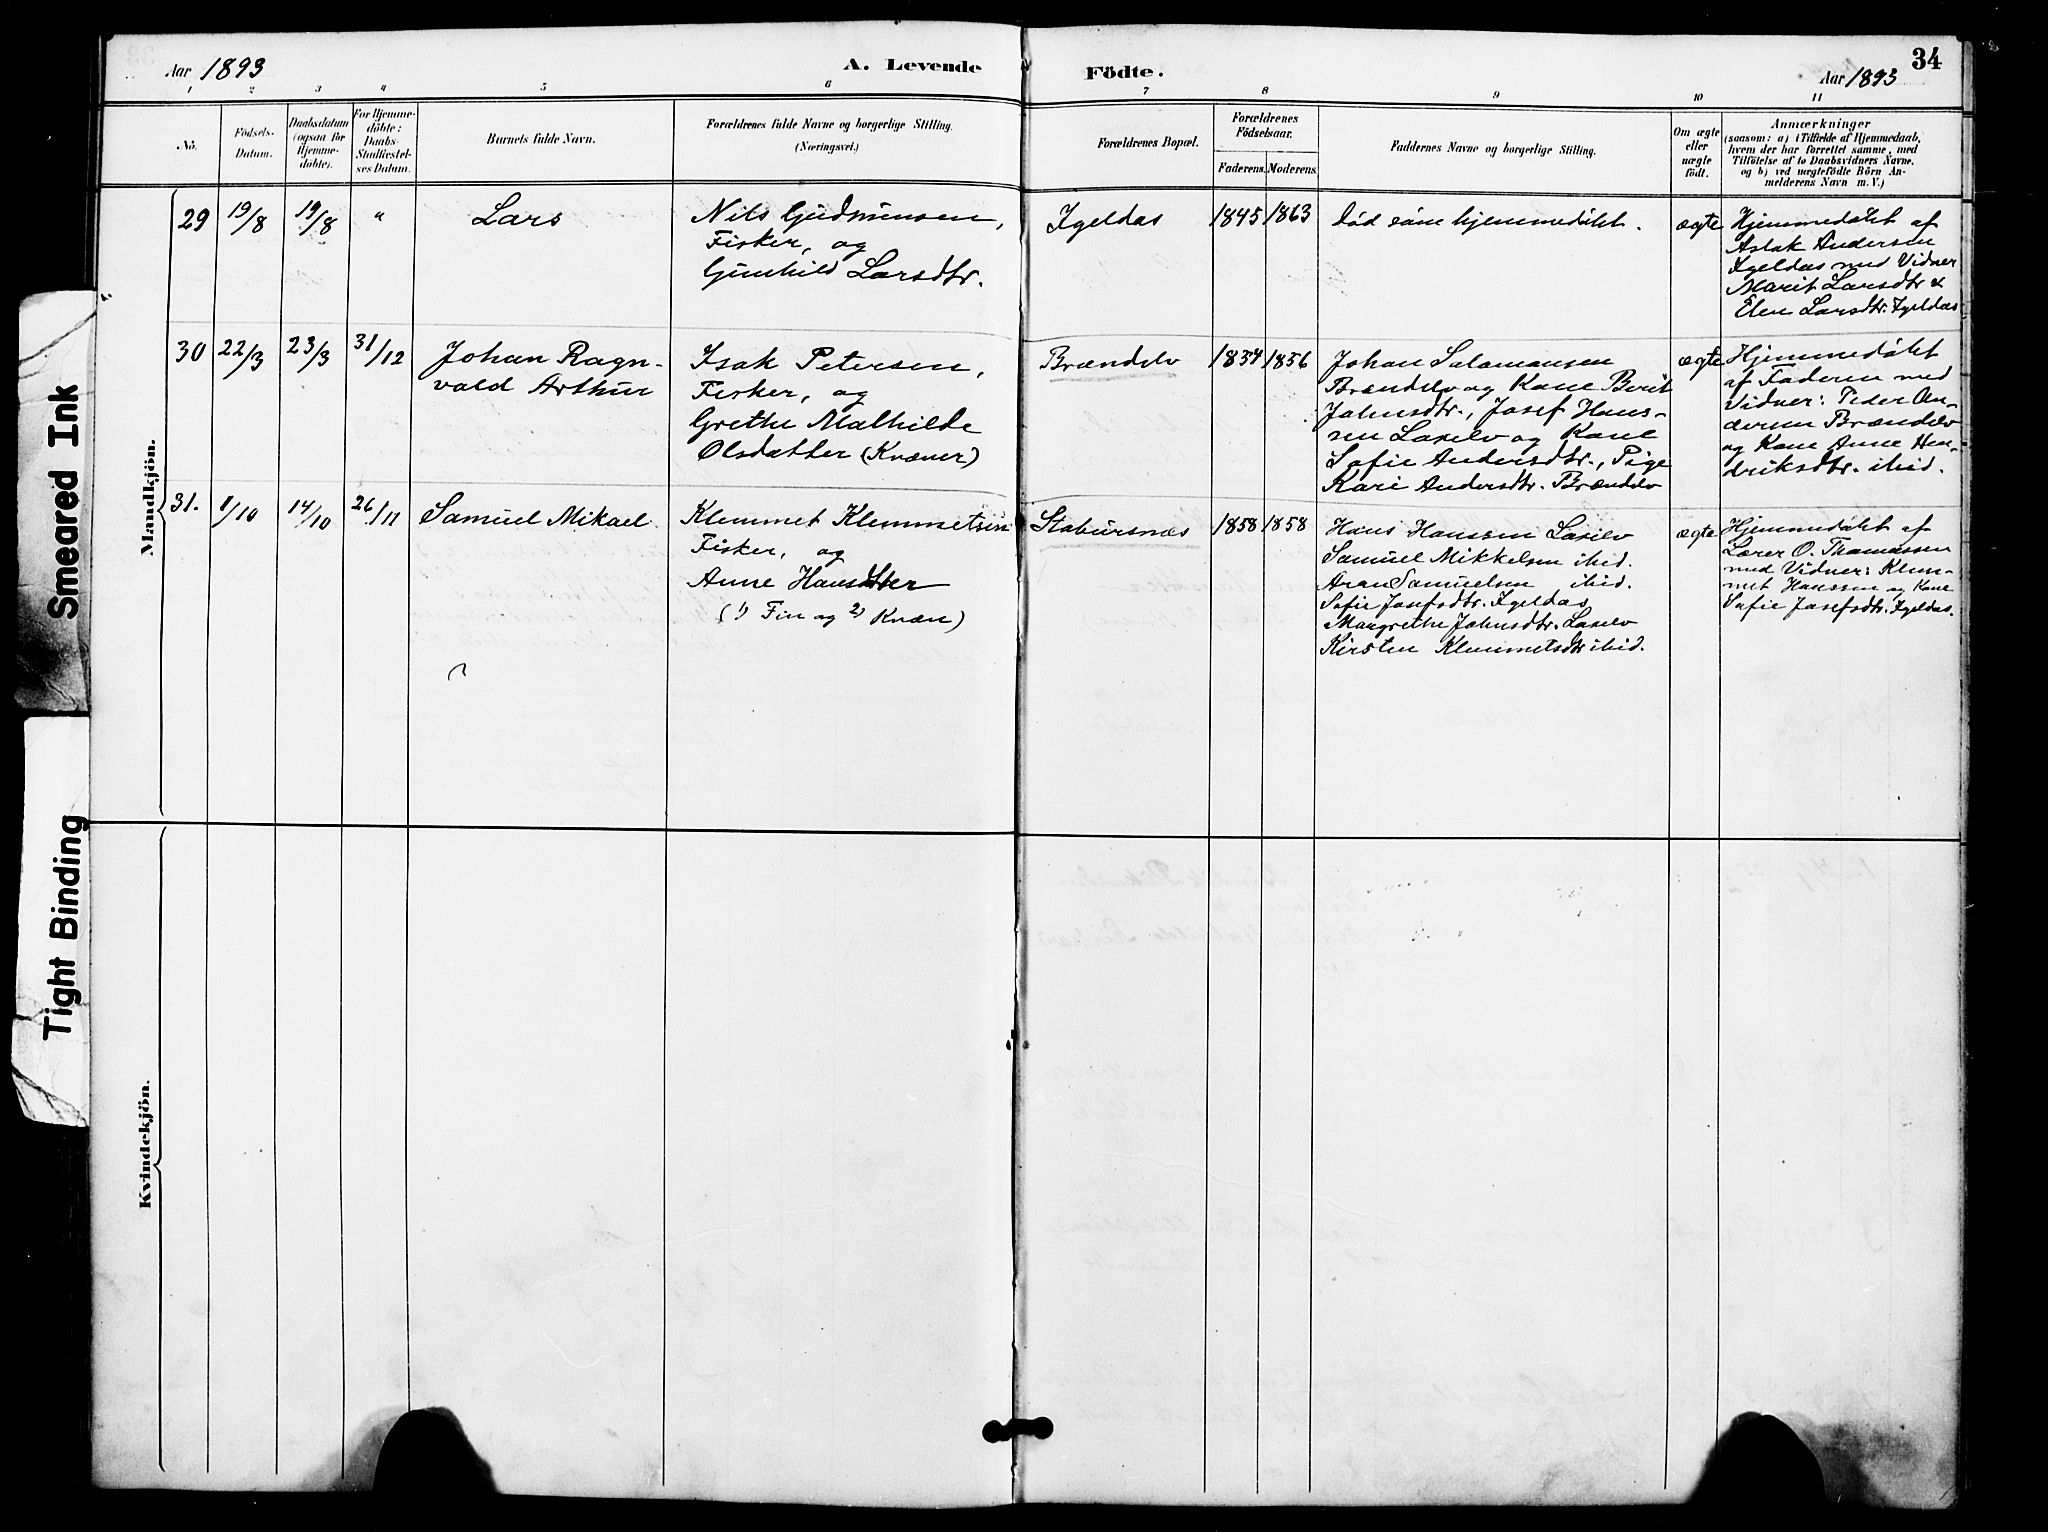 Aar 1893
A. Levende
Födte.
34
Aar 1893
1 2 3 4 5 6 7 8 9 10 11
No.
Födsels-
Datum.
Daabsdatum
(ogsaa for
Hjemme-
døbte).
For Hjemme-
døbte:
Daabs-
Stadfæstel-
ses Datum.
Barnets fulde Navn.
Forældrenes fulde Navne og borgerlige Stilling.
(Næringsvei.)
Forældrenes Bopæl.
Forældrenes
Födselsaar.
Faderens. Moderens.
Faddernes Navne og borgerlige Stilling.
Om ægte
eller
uægte
født.
Anmærkninger
(saasom: a) i Tilfælde af Hjemmedaab,
hvem der har forrettet samme, med
Tilføielse af to Daabsvidners Navne,
og b) ved uægtefødte Börn An-
melderens Navn m. V.)
Mandkjön.
29 19/8 19/8 " Lars
Nils Gudmunsen,
Fisker, og
Gunhild Larsdtr.
Igeldas 1845 1863
død som hjemmedøbt.
ægte
Hjemmedøbt af
Aslak Andersen
Igeldas med Vidner
Marit Larsdtr &
Elen Larsdtr. Igeldas
30 22/3 23/3 31/12
Johan Ragn-
vald Arthur
Isak Petersen,
Fisker, og
Grethe Mathilde
Olsdatter (Kvæner)
Brændelv 1854 1856
Johan Salamansen
Brændelv og Kone Berit
Johnsdtr., Josef Hans-
sen Laxelv og Kone
Sofie Andersdtr., Pige
Kari Andersdtr. Brændelv
ægte
Hjemmedøbt
af Faderen med
Vidner: Peder An-
dersen Brændelv
og Kone Anne Hen-
driksdtr. ibid.
31. 1/10 14/10 26/11 Samuel Mikael
Klemmet Klemmetsen
Fisker, og
Anne Hansdtter
(1) Fin og 2) Kvæn)
Stabursnæs 1858 1858
Hans Hanssen Laxelv
Samuel Mikkelsen ibid.
Aran Samuelsen ibid.
Sofie Josefsdtr. Igeldas
Margrethe Johnsdtr. Laxelv
Kirsten Klemmetsdtr ibid.
ægte
Hjemmedøbt af
Lærer O. Thomassen
med Vidner: Klem-
met Hanssen og Kone
Sofie Josefsdtr. Igeldas.
Kvindekjön.
Smeared Ink
Tight Binding